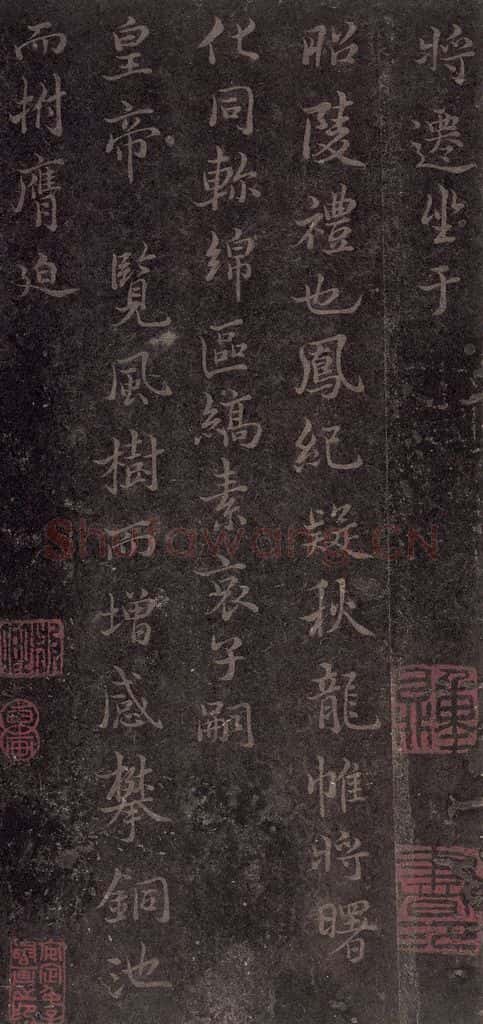 將遷坐于
昭陵禮也鳳紀疑秋龍帷將曙
化同軫綿區縞素哀子嗣
皇帝 覽風樹而增感攀銅池
而拊膺迫
Shufawang.CN